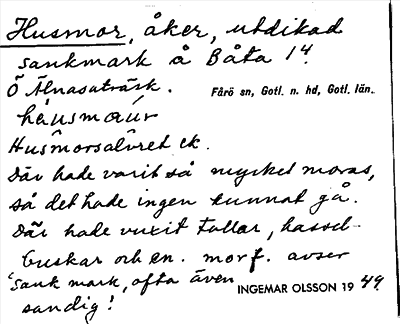 Husmor, åker, utdikad
sankmark å Båta 1 4.
Ö Alnasaträsk. Fårö sn, Gotl. n. hd, Gotl. län.
háusmaúr
Husmorsalvret ek.
Där hade varit så mycket moras,
så det hade ingen kunnat gå.
Där hade vuxit tallar, hassel-
buskar och en. morf. avser
'sank mark, ofta även
sandig!
INGEMAR OLSSON 19 49.